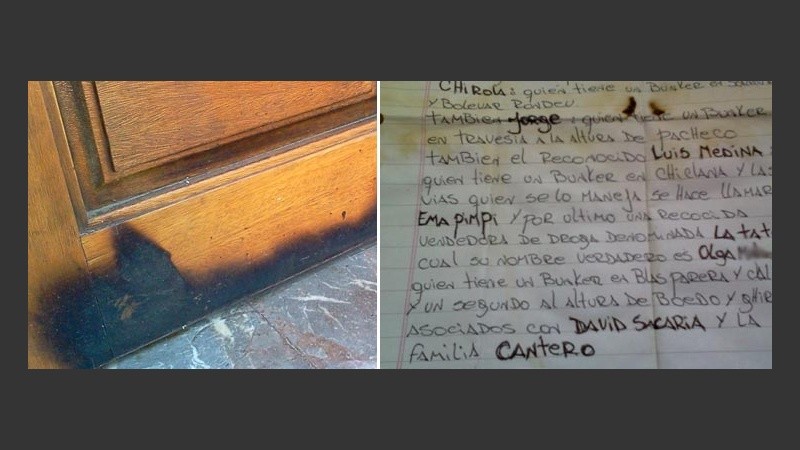 CHIROLA: quien tiene un Bunker en
y Bolevar Rondeu.
también Jorge : quien tiene un Bunker
en travesia a la altura de Pacheco
también el Reconocido Luis Medina :
quien tiene un Bunker en Chiclana y las
vias quien se lo maneja se hace llamar
Ema Pimpi y por ultimo una Recocida
vendedora de droga denominada La tat
cual su nombre verdadero es Olga
quien tiene un Bunker en Blas Parera y
y un segundo al altura de Boedo y
asociados con David Sacaria y la
familia Cantero